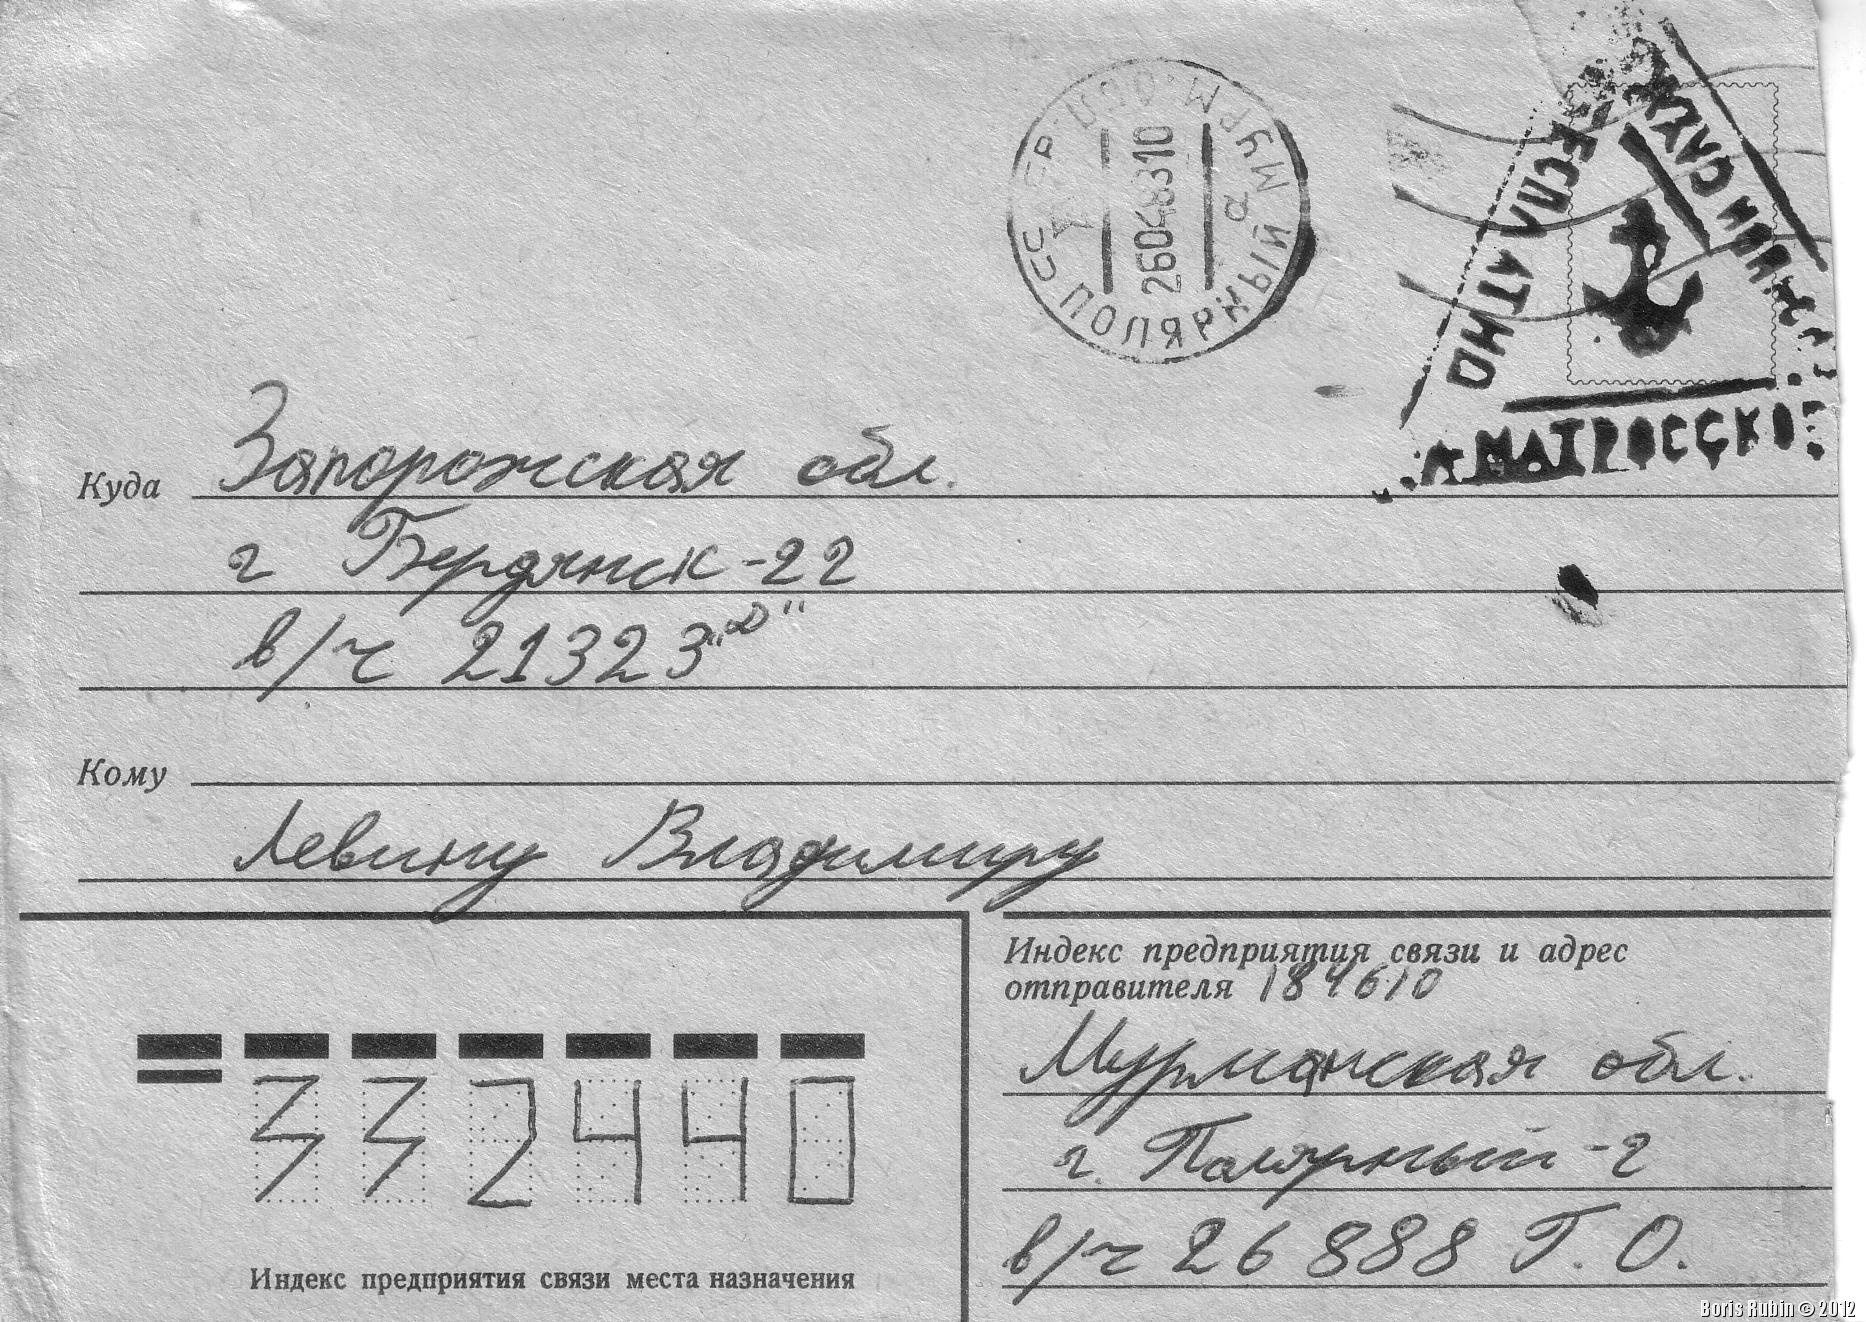 СССР ПОЛЯРНЫЙ МУРМ. ОБЛ
а
БЕСПЛАТНО
МАТРОССКОЕ
Куда Запорожская обл.
г Бердянск-22
в/ч 21323
Кому
Левину Владимиру
Индекс предприятия связи и адрес
отправителя 184610
Мурманская обл.
г. Полярный-2
в/ч 26888 Г.О.
332440
Индекс предприятия связи места назначения
Boris Rubin © 2012